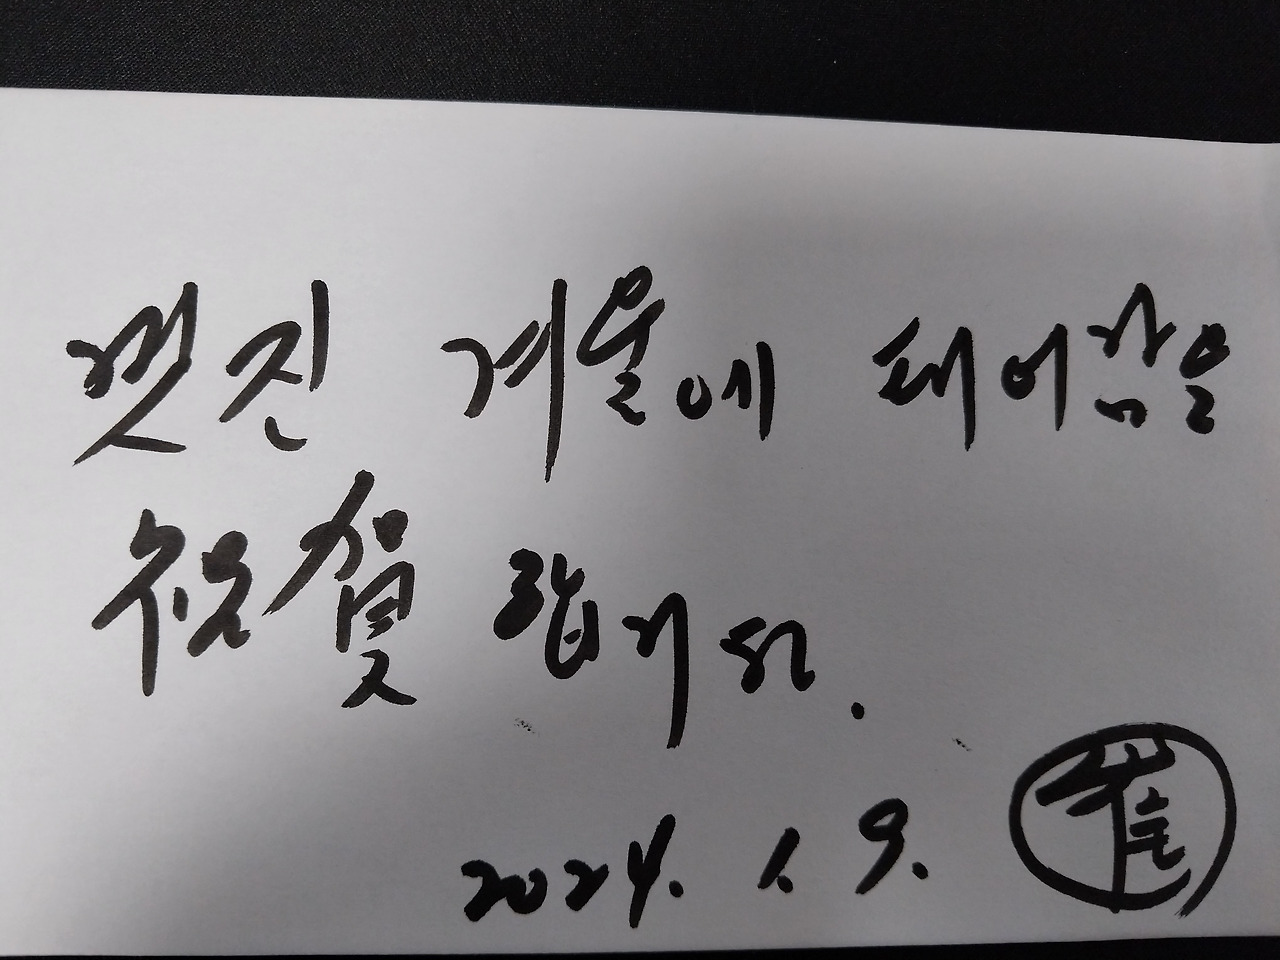 멋진 겨울에 태어남을
祝賀 합니다.
2024. 1. 9.
崔